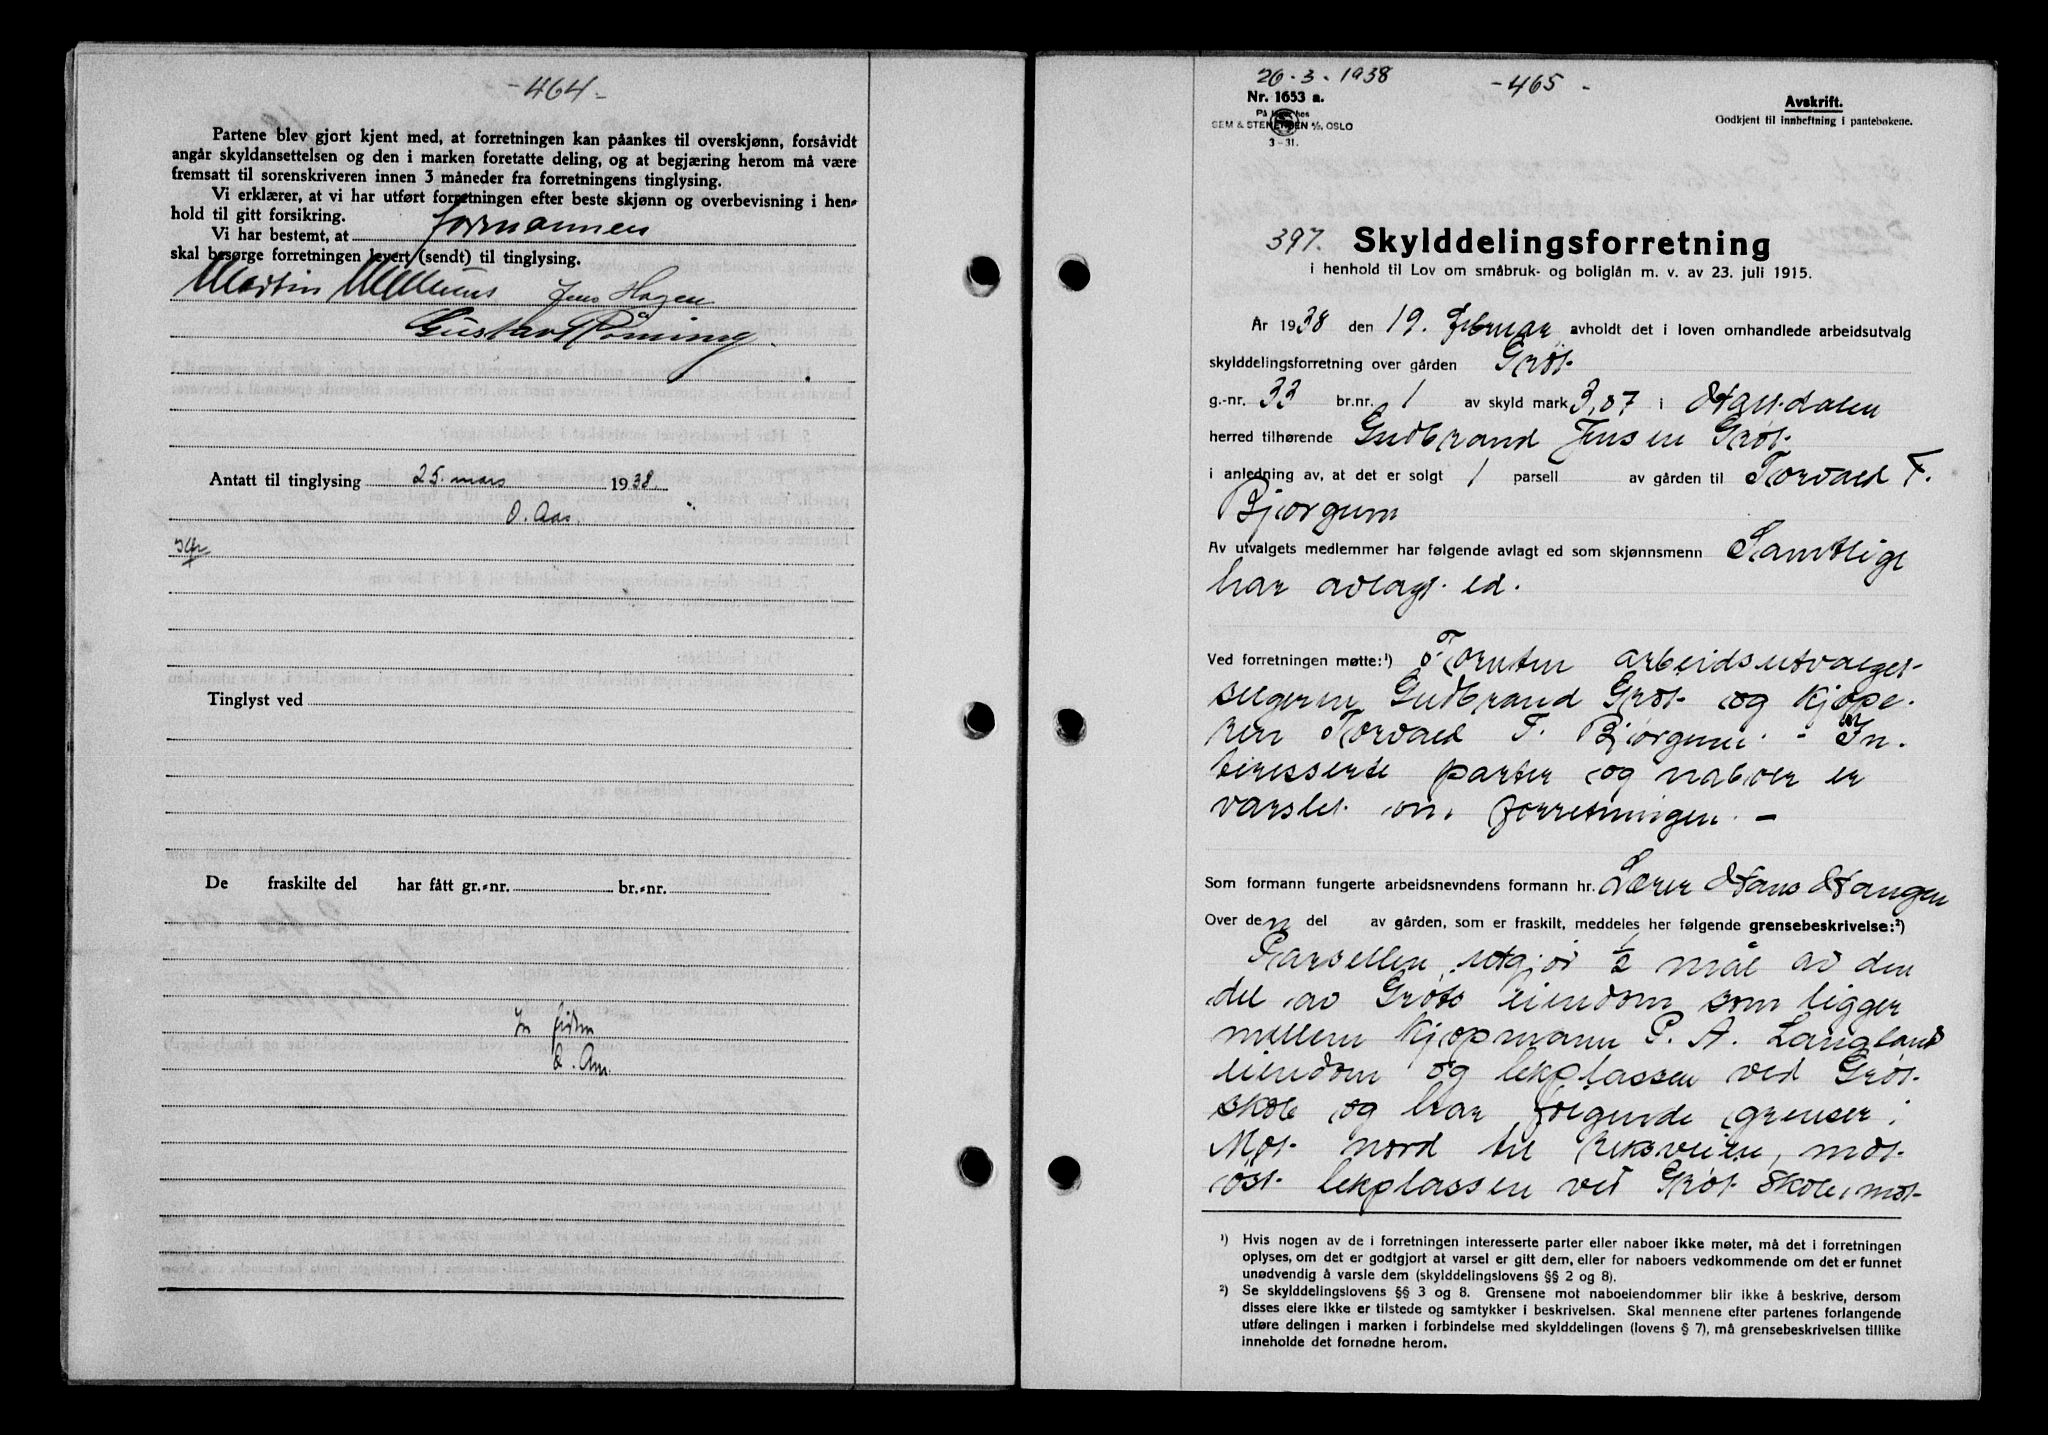 -464-
Partene blev gjort kjent med, at forretningen kan påankes til overskjønn, forsåvidt
angår skyldansettelsen og den i marken foretatte deling, og at begjæring herom må være
fremsatt til sorenskriveren innen 3 måneder fra forretningens tinglysing.
Vi erklærer, at vi har utført forretningen efter beste skjønn og overbevisning i hen-
hold til gitt forsikring.
Vi har bestemt, at formannen
skal besørge forretningen levert (sendt) til tinglysing.
Martin Jens Hagen
Gustav Røning
Antatt til tinglysing 25. mars 1938
O. Aas.
Tinglyst ved
De fraskilte del har fått gr.-nr. br.-nr.
26-3-1938
-465-
Nr. 1653 a.
På lager hos
SEM & STENERSEN A/S, OSLO
3-31.
Avskrift.
Godkjent til innheftning i pantebøkene.
397. Skylddelingsforretning
i henhold til Lov om småbruk- og boliglån m. v. av 23. juli 1915.
År 1938 den 19. februar avholdt det i loven omhandlede arbeidsutvalg
skylddelingsforretning over gården Grøt
g.-nr. 33 br.nr. 1 av skyld mark 3,07 i
herred tilhørende Gudbrand Jensen Grøt
i anledning av, at det er solgt 1 parsell av gården til Torvald F.
Bjørgum
Av utvalgets medlemmer har følgende avlagt ed som skjønnsmenn Samtlige
har avlagt ed.
Ved forretningen møtte:¹) Foruten arbeidsutvalget
selgeren Gudbrand Grøt og kjøpe-
ren Torvald F. Bjørgum. - In-
teresserte parter og naboer er
varslet om forretningen. -
Som formann fungerte arbeidsnevndens formann hr. Lærer Hans Haugen
Over den del av gården, som er fraskilt, meddeles her følgende grensebeskrivelse:²)
Parsellen utgjør 1/2 mål av den
del av Grøts eiendom som ligger
mellem kjøpmann P. A. Langlands
eiendom og lekplassen ved Grøt
skole og har følgende grenser:
Mot nord til riksveien, mot
øst lekplassen ved Grøt skole, mot
¹) Hvis nogen av de i forretningen interesserte parter eller naboer ikke møter, må det i forretningen
oplyses, om det er godtgjort at varsel er gitt dem, eller for naboers vedkommende om det er funnet
unødvendig å varsle dem (skylddelingslovens §§ 2 og 8).
²) Se skylddelingslovens §§ 3 og 8. Grensene mot naboeiendommer blir ikke å beskrive, dersom
disses eiere ikke er tilstede og samtykker i beskrivelsen. Skal mennene efter partenes forlangende
utføre delingen i marken i forbindelse med skylddelingen (lovens § 7), må grensebeskrivelsen tillike
inneholde det fornødne herom.